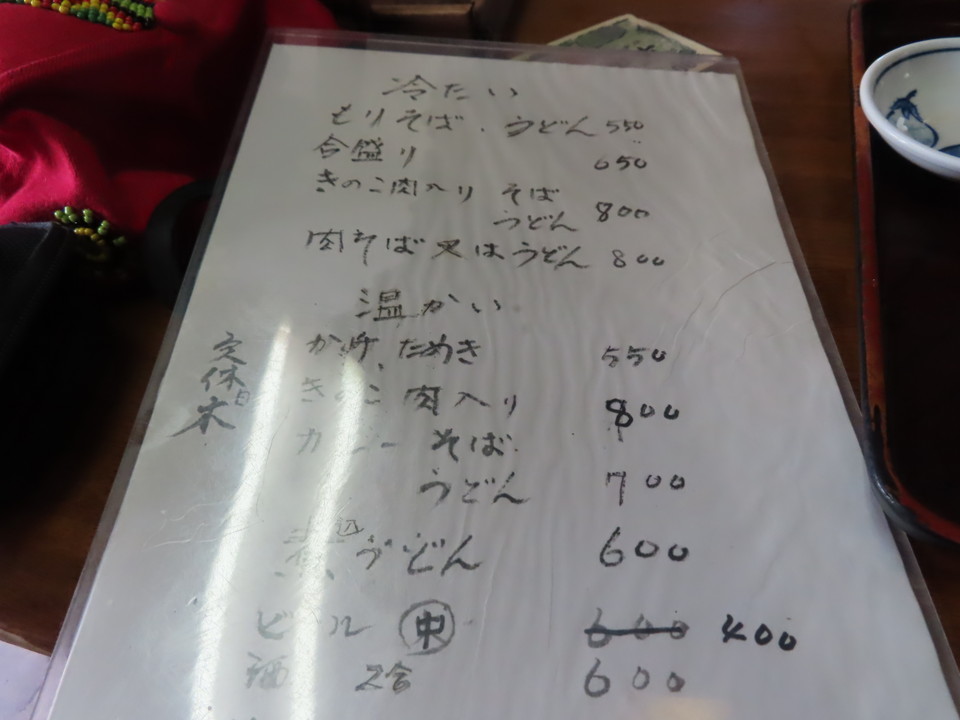 冷たい
もりそば・うどん 550
合盛り 650
きのこ肉入り そば
うどん 800
肉そば又はうどん 800
温かい
かけ、たぬき 550
きのこ 肉入り 800
カレー そば
うどん 700
煮込うどん 600
ビール ㊥ 600 400
酒 2合 600
定休日 木